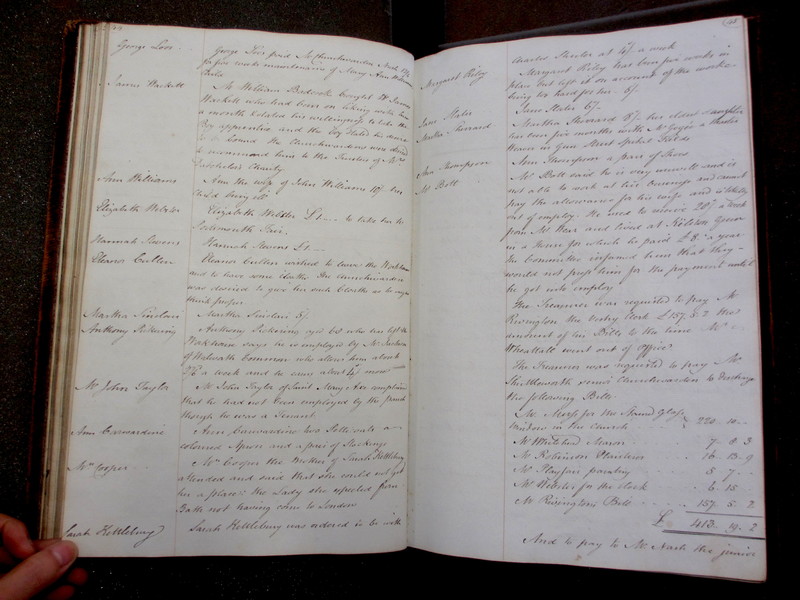 George Love
George Love paid Mr Churchwarden
for five weeks maintenance of Mary Ann Williams
Child
James Hackett
Mr William Badcock brought up James
Hackett who had been on liking with him
a month & stated his willingness to take the
Boy apprentice and the Boy stated he desired
to be bound the Churchwarden was desired
to recommend him to the Trustees of Mrs
Charity
Ann Williams
Ann the wife of John Williams 10/- her
Child being ill
Elizabeth Webster
Elizabeth Webster £1 .. - to take her to
Portsmouth Fair.
Hannah Stevens
Hannah Stevens £1 ..
Eleanor Cullen
Eleanor Cullen wished to leave the Workhouse
and to have some Cloaths the Churchwarden
was desired to give her such Cloaths as he may
think proper
Martha Sinclair
Martha Sinclair 5/.
Anthony Pickering
Anthony Pickering aged 63 who has left the
Workhouse says he is employed by Mr
of Walworth Common who allows him about
7/6 a week and he earns about 4/ more
Mr John Taylor
Mr John Taylor of Saint Mary Axe complained
that he had not been employed by the parish
though he was a Tenant
Ann Carwardine
Ann Carwardine two petticoats a
coloured Apron and a pair of Stockings
Mrs Cooper
Mrs Cooper the Mother of Sarah Kettlebury
attended and said that she could not get
her a place: the Lady she expected from
Bath not having come to London
Sarah Kettlebury
Sarah Kettlebury was ordered to be with
Charles Shuter at 4/ a week
Margaret Riley
Margaret Riley has been five weeks in
place but left it on account of the work
being too hard for her. 5/.
Jane Slater
Jane Slater 6/.
Martha Sherrard
Martha Sherrard 8/. her eldest daughter
has been five months with Mr a
in Gun Street Spital Fields
Ann Thompson
Ann Thompson a pair of Shoes
Mr Bolt
Mr Bolt said he is very unwell and is
not able to work at his Business and cannot
pay the allowance for his wife and is likely
out of employ. He used to receive 20/ a week
from Mr Wear and lived at
in a House for which he paid £8 a year
the Committee informed him that they
would not press him for the payment until
he got into employ
The Treasurer was requested to pay Mr
Rivington the Vestry Clerk £157.5.2 the
amount of his Bills to the time Mr
Wheatall went out of office
The Treasurer was requested to pay Mr
Shuttleworth senior Churchwarden to discharge
the following Bills
for the Stained Glass
window in the Church 220 .. 10 ..
Mr Whitehead Mason 7 . 8 . 3
Mr Robinson Plumber 16 . 13 . 9
Mr Playfair 5 . 7 ..
Mr Webster for the Clock 6 . 15 ..
Mr Rivington's Bill 157 . 5 . 2
£ 413 . 19 . 2
And to pay to Mr Nash the junior